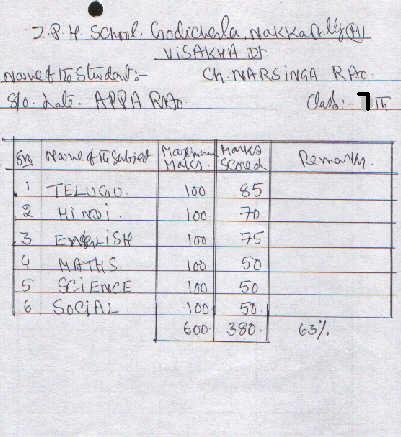 Z.P.H School. Godicherla, Nakkapalli (M)
VISAKHA Dt
Name of The Student:- Ch. NARSINGA RAo.
S/o. Late. APPA RAo Class: 7 Th
S.No Name of The Subject Maximum Marks Marks Scored Remarks.
1 TELUGU. 100 85
2 Hindi. 100 70
3 ENGLISH 100 75
4 MATHS 100 50
5 SCIENCE 100 50
6 SOCIAL 100 50.
600 380. 63%